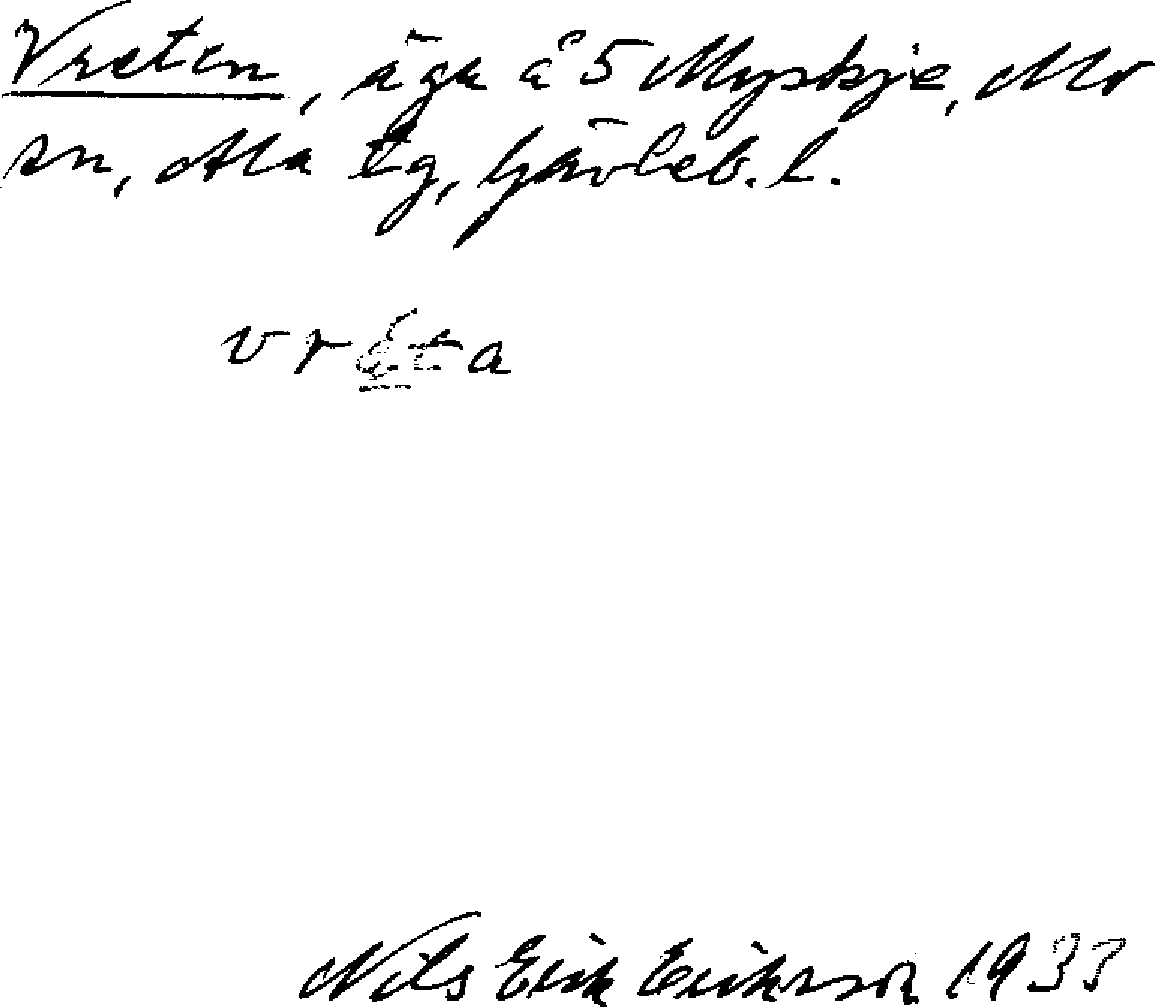 Vreten, äga å 5 Myskje, Mo
sn, Ala tg, Gävleb. l.
vreta
Nils Erik Erikson 1933